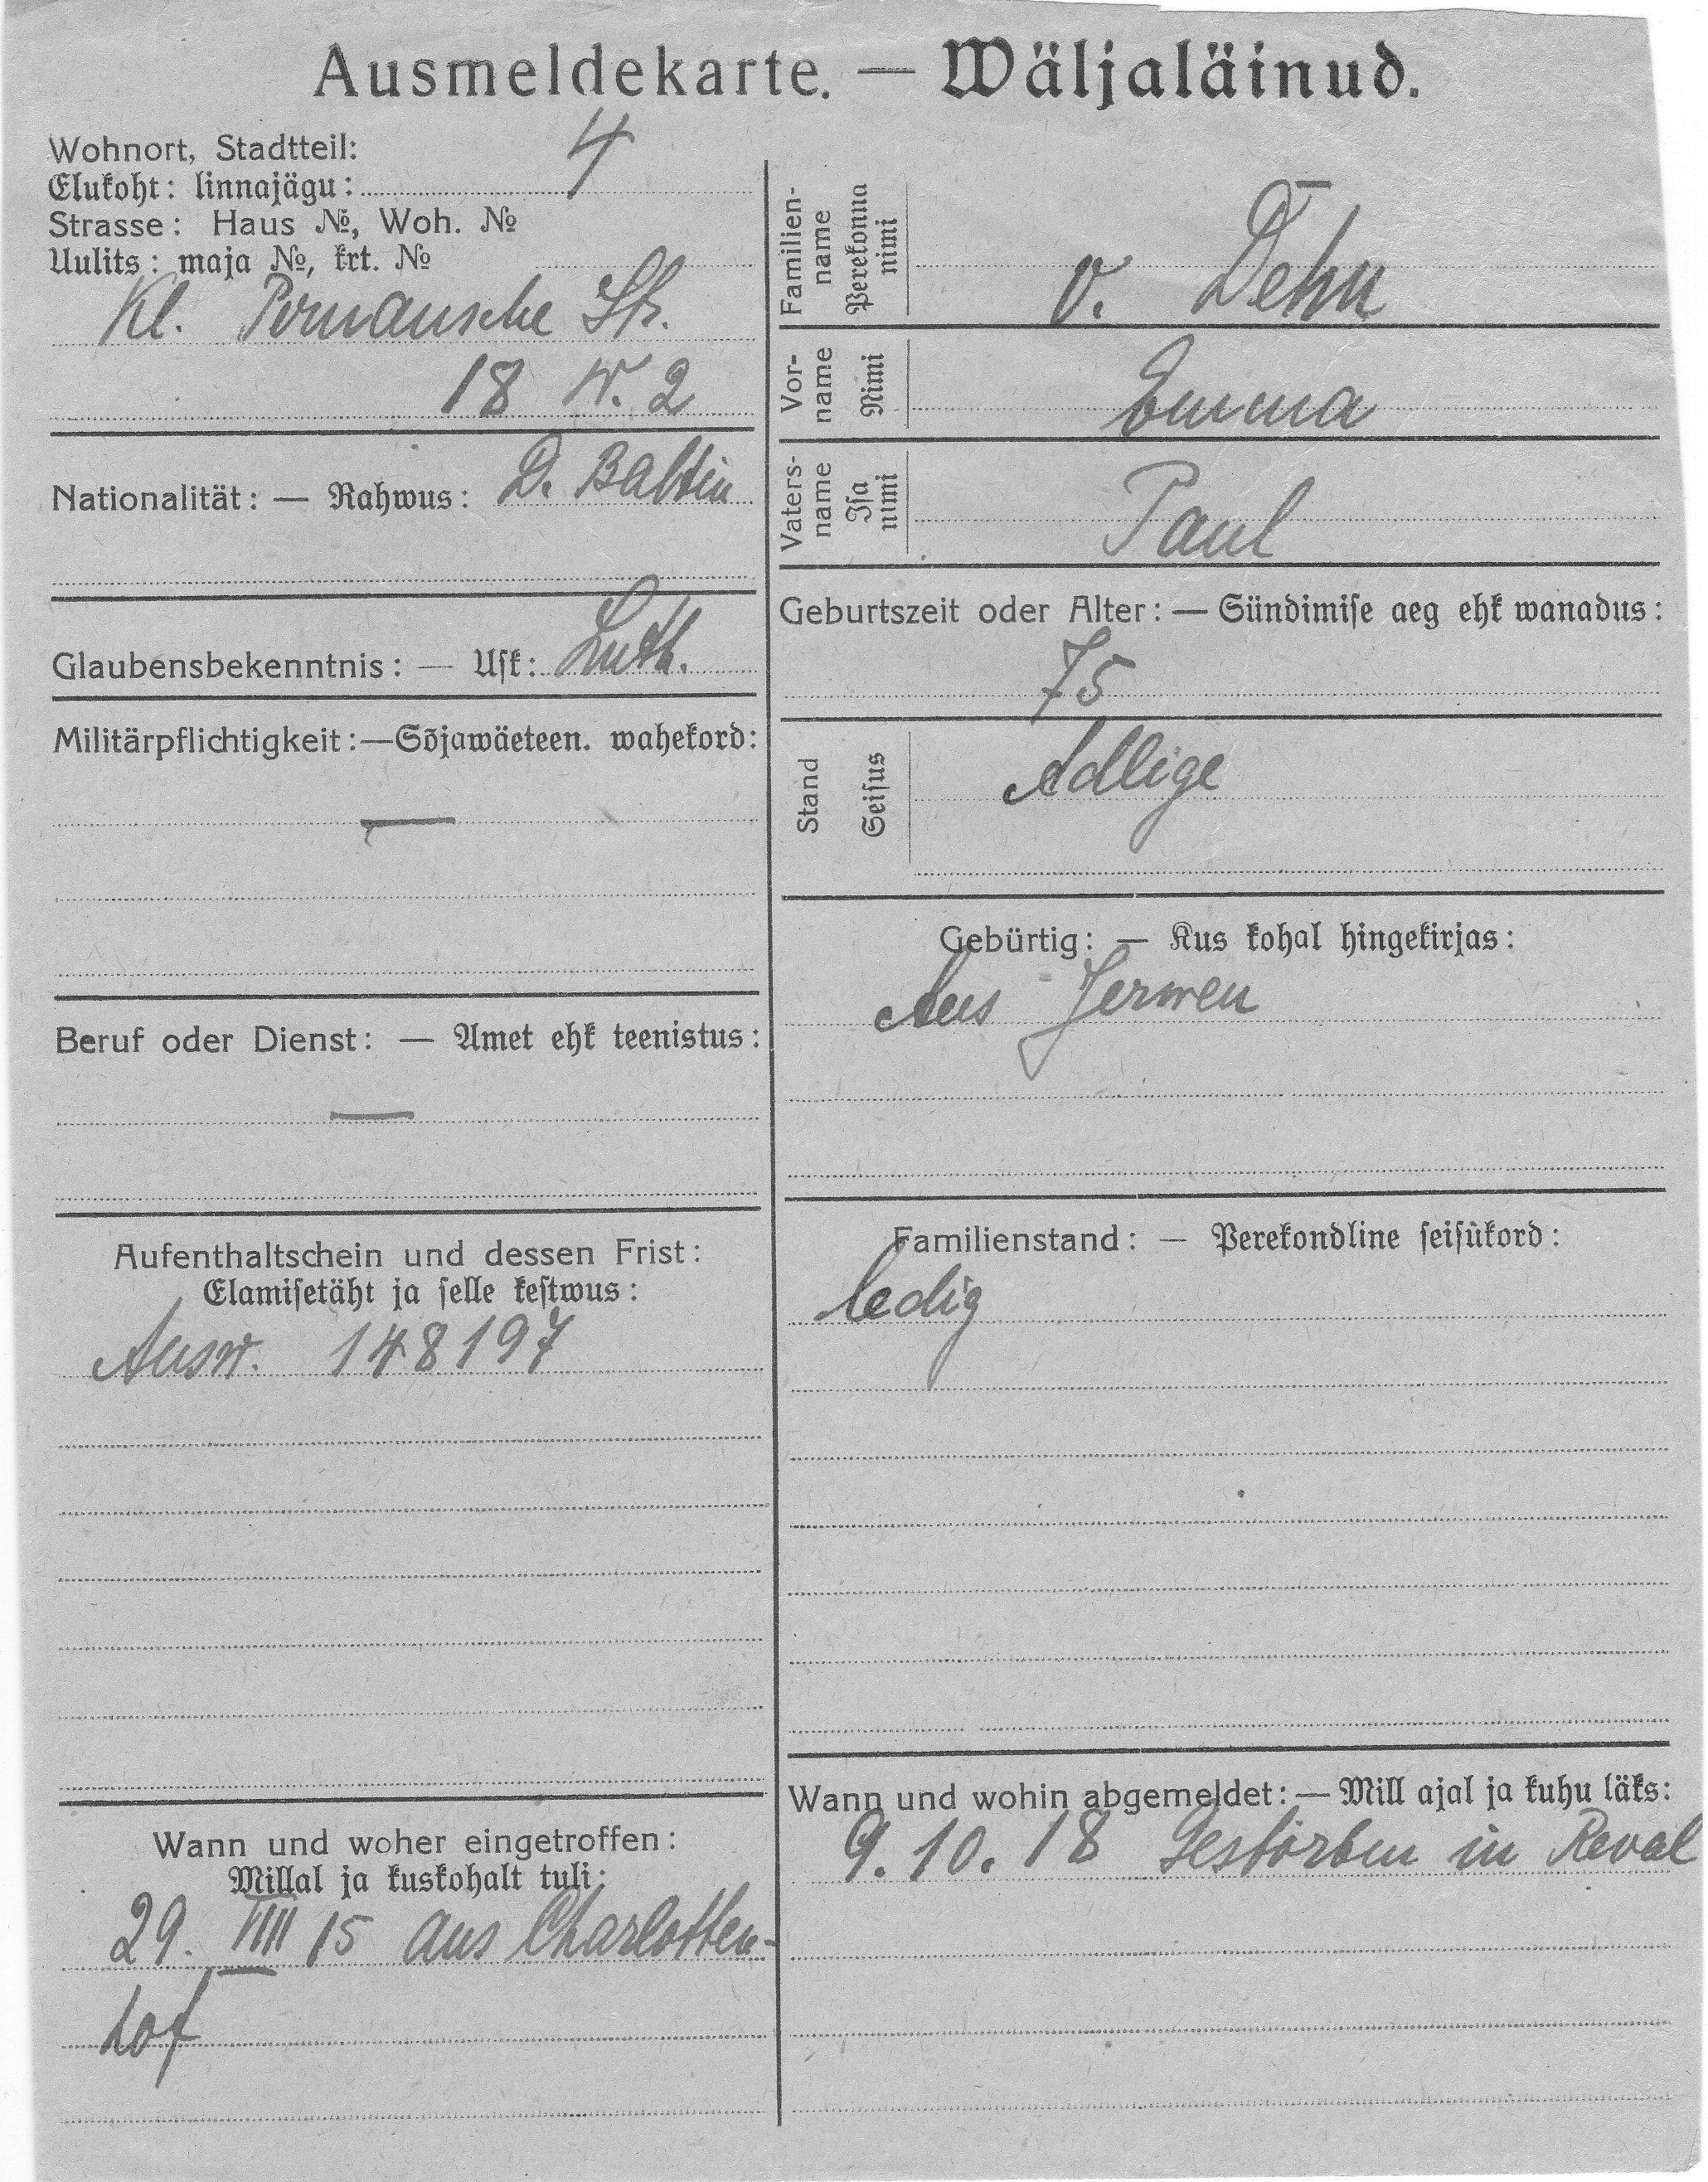 Ausmeldekarte. — Wäljaläinud.
Wohnort, Stadtteil:
Elukoht: linnajägu: 4
Strasse: Haus №, Woh. №
Uulits: maja №, krt. №
Kl. Pernausche Str.
18 W. 2
Nationalität: — Rahwus: D. Baltin
Glaubensbekenntnis: — Usk: Luth.
Militärpflichtigkeit:—Sõjawäeteen. wahekord:
—
Beruf oder Dienst: — Amet ehk teenistus:
—
Aufenthaltschein und dessen Frist:
Elamisetäht ja selle kestwus:
Ausw. 148197
Wann und woher eingetroffen:
Millal ja kuskohalt tuli:
29. VIII 15 aus Charlotten-
hof
Familien-
name
Perekonna
nimi
v. Dehn
Vor-
name
Nimi
Emma
Vaters-
name
Isa
nimi
Paul
Geburtszeit oder Alter: — Sündimise aeg ehk wanadus:
75
Stand
Seisus
Adlige
Gebürtig: — Kus kohal hingekirjas:
Aus Jerwen
Familienstand: — Perekondline seisukord:
ledig
Wann und wohin abgemeldet: — Mill ajal ja kuhu läks:
9. 10. 18 Gestorben in Reval